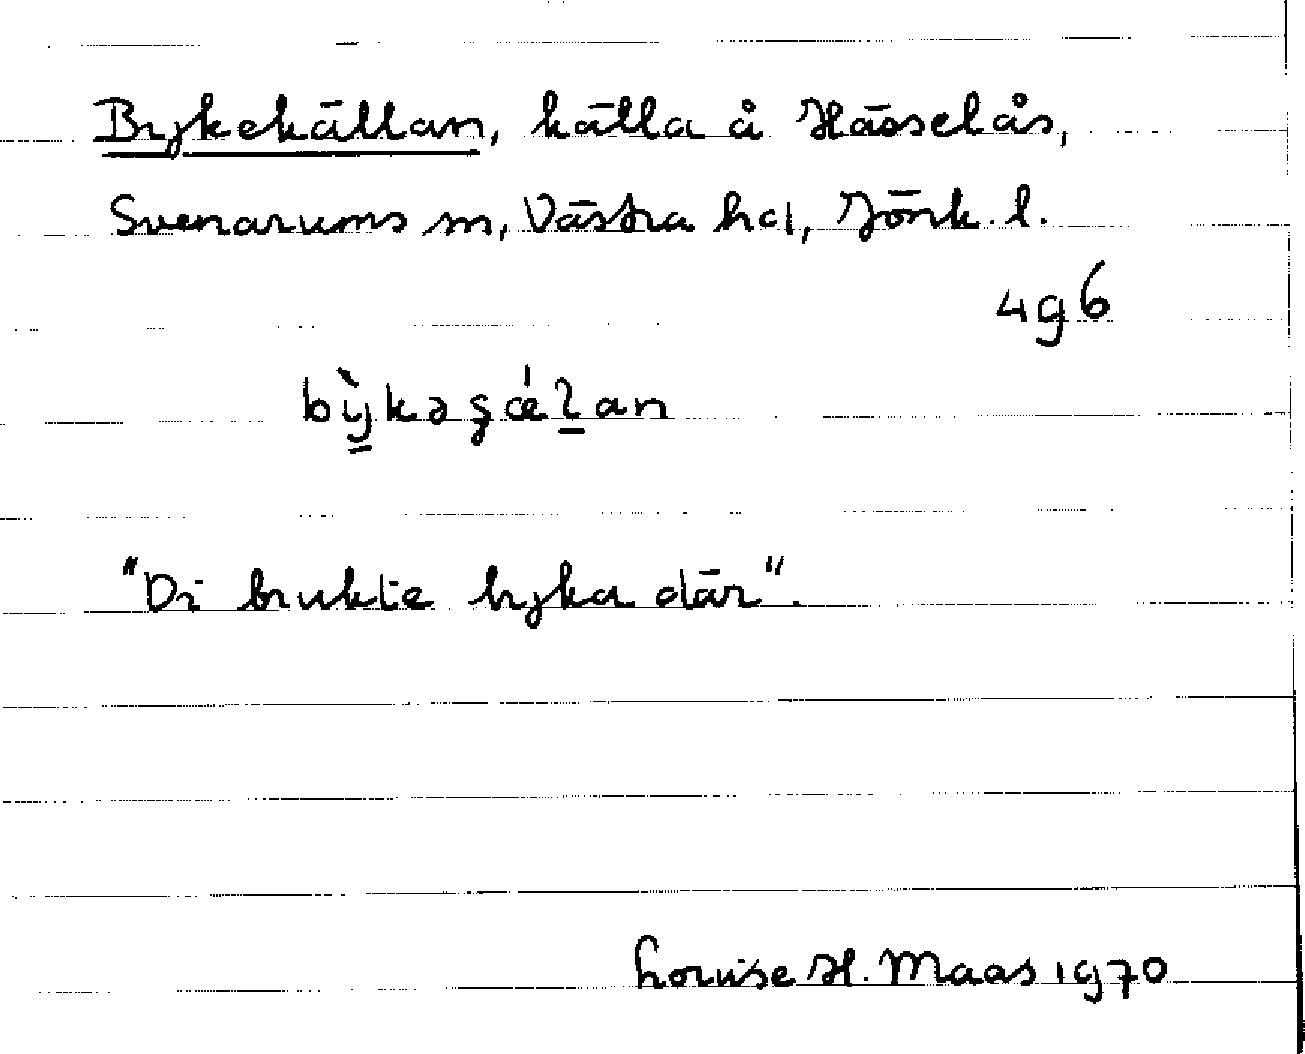 Bykekällan, källa å Hässelås,
Svenarums sn, Västra hd, Jönk. l.
4g6
bỳ̠kəȿǽl̠an
"Di brukte byka där".
Louise H. Maas 1970